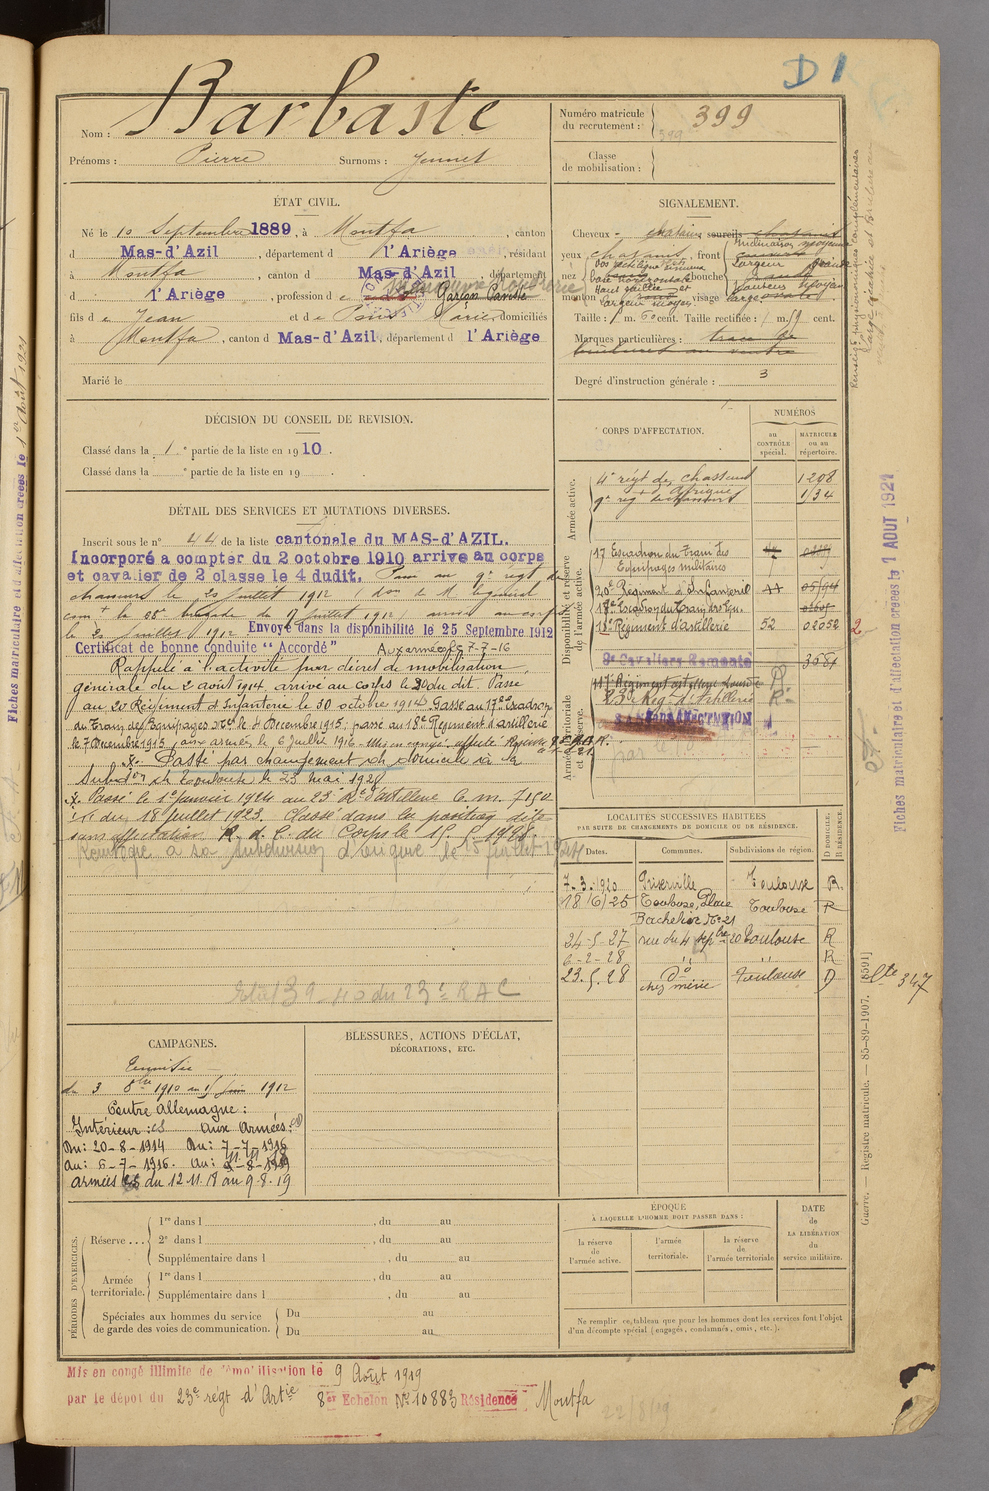 D 1
Nom : Barbaste
Prénoms : Pierre Surnoms : Jeunet
Numéro matricule du recrutement : 399
Classe de mobilisation :
ÉTAT CIVIL.
Né le 10 Septembre 1889, à Montfa, canton
d Mas-d'Azil, département d l'Ariège, résidant
à Montfa, canton d Mas-d'Azil, département
d l'Ariège, profession d e Garçon
fils d e Jean et d e Pons Marie domiciliés
à Montfa, canton d Mas-d'Azil, département d l'Ariège
Marié le
SIGNALEMENT.
Cheveux - chatains sourcils chatains
yeux chatains, front
Inclinaison moyenne
Largeur grande
nez
Dos rectiligne
base horizontale
Haut. petite et
largeur moyen
bouche
Hauteur moyen
menton visage large
Taille : 1 m. 60 cent. Taille rectifiée : 1 m. 59 cent.
Marques particulières : trace de
brulures au ventre
Degré d'instruction générale : 3
DÉCISION DU CONSEIL DE REVISION.
Classé dans la 1e partie de la liste en 1910.
Classé dans la e partie de la liste en 19
DÉTAIL DES SERVICES ET MUTATIONS DIVERSES.
Inscrit sous le n° 44 de la liste cantonale du MAS-d'AZIL.
Incorporé a compter du 2 octobre 1910 arrivé au corps
et cavalier de 2 classe le 4 dudit. Passé au 9e régt de
chasseurs le 20 juillet 1912
le 20 juillet 1912. Envoyé dans la disponibilité le 25 Septembre 1912
Certificat de bonne conduite "Accordé" Aux armées le 7-7-16
Rappelé à l'activité par décret de mobilisation
générale du 2 août 1914, arrivé au corps le 20 du dit. Passé
au 20 Régiment d'Infanterie le 30 octobre 1914. Passé au 17e Escadron
du Train des Equipages Mres le 4 Décembre 1915, passé au 18e Régiment d'artillerie
le 7 Décembre 1915, aux armées le 6 Juillet 1916 -
Passé par changement de domicile à la
Subdon de Toulouse le 25 mai 1920
Passé le 1er janvier 1924 au 23e Rt d'artillerie C. m. 7150
du 18 Juillet 1923. Classé dans la position dite
sans affectation. R. d. C. du Corps le 15.5.1928
CORPS D'AFFECTATION.
NUMÉROS
au CONTRÔLE spécial.
MATRICULE ou au répertoire.
Armée active.
4e régt de chasseurs d'Afrique 1298
9e rég de chasseurs 1134
Disponibilité et réserve de l'armée active.
17 Escadron du Train des
Equipages militaires
20e Régiment d'Infanterie
18e Escadron du Train des Eq.
18e Régiment d'artillerie 52 02052
9e Cavaliers Remonte 3584
Armée territoriale et sa réserve.
23e Rég d'Artillerie
SANS AFFECTATION
LOCALITÉS SUCCESSIVES HABITÉES
PAR SUITE DE CHANGEMENTS DE DOMICILE OU DE RÉSIDENCE.
Dates. Communes. Subdivisions de région. D DOMICILE, R RÉSIDENCE.
7-3-1920 Toulouse R
18/6/25 Toulouse, Place Bachelier No 21 Toulouse R
24-5-27 rue du 4 septbre 20 Toulouse R
6-2-28 " " R
23.5.28 do chez mérie Toulouse D
CAMPAGNES.
Tunisie
du 3 8bre 1910 au 15 juin 1912
Contre Allemagne :
Intérieur : CS Aux Armées : CD
Du : 20-8-1914 Du : 7-7-1916
au : 6-7-1916. au : 11.11.18
armées CS du 12.11.18 au 9.8.19
BLESSURES, ACTIONS D'ÉCLAT,
DÉCORATIONS, ETC.
PÉRIODES D'EXERCICES.
Réserve... 1re dans l , du au
2e dans l , du au
Supplémentaire dans l , du au
Armée territoriale. 1re dans l , du au
Supplémentaire dans l , du au
Spéciales aux hommes du service
de garde des voies de communication. Du au
Du au
ÉPOQUE
À LAQUELLE L'HOMME DOIT PASSER DANS :
la réserve de l'armée active.
l'armée territoriale.
la réserve de l'armée territoriale
DATE de LA LIBÉRATION du service militaire.
Ne remplir ce tableau que pour les hommes dont les services font l'objet
d'un décompte spécial (engagés, condamnés, omis, etc.).
Mis en congé illimité de démobilisation le 9 Août 1919
par le dépôt du 23e régt d'Artie 8e Echelon No 10883 Résidence Montfa
22/8/19
Fiches matriculaire et d'affectation créées le 1 AOUT 1921
Guerre. — Registre matricule. — 85-89-1907. [8591]